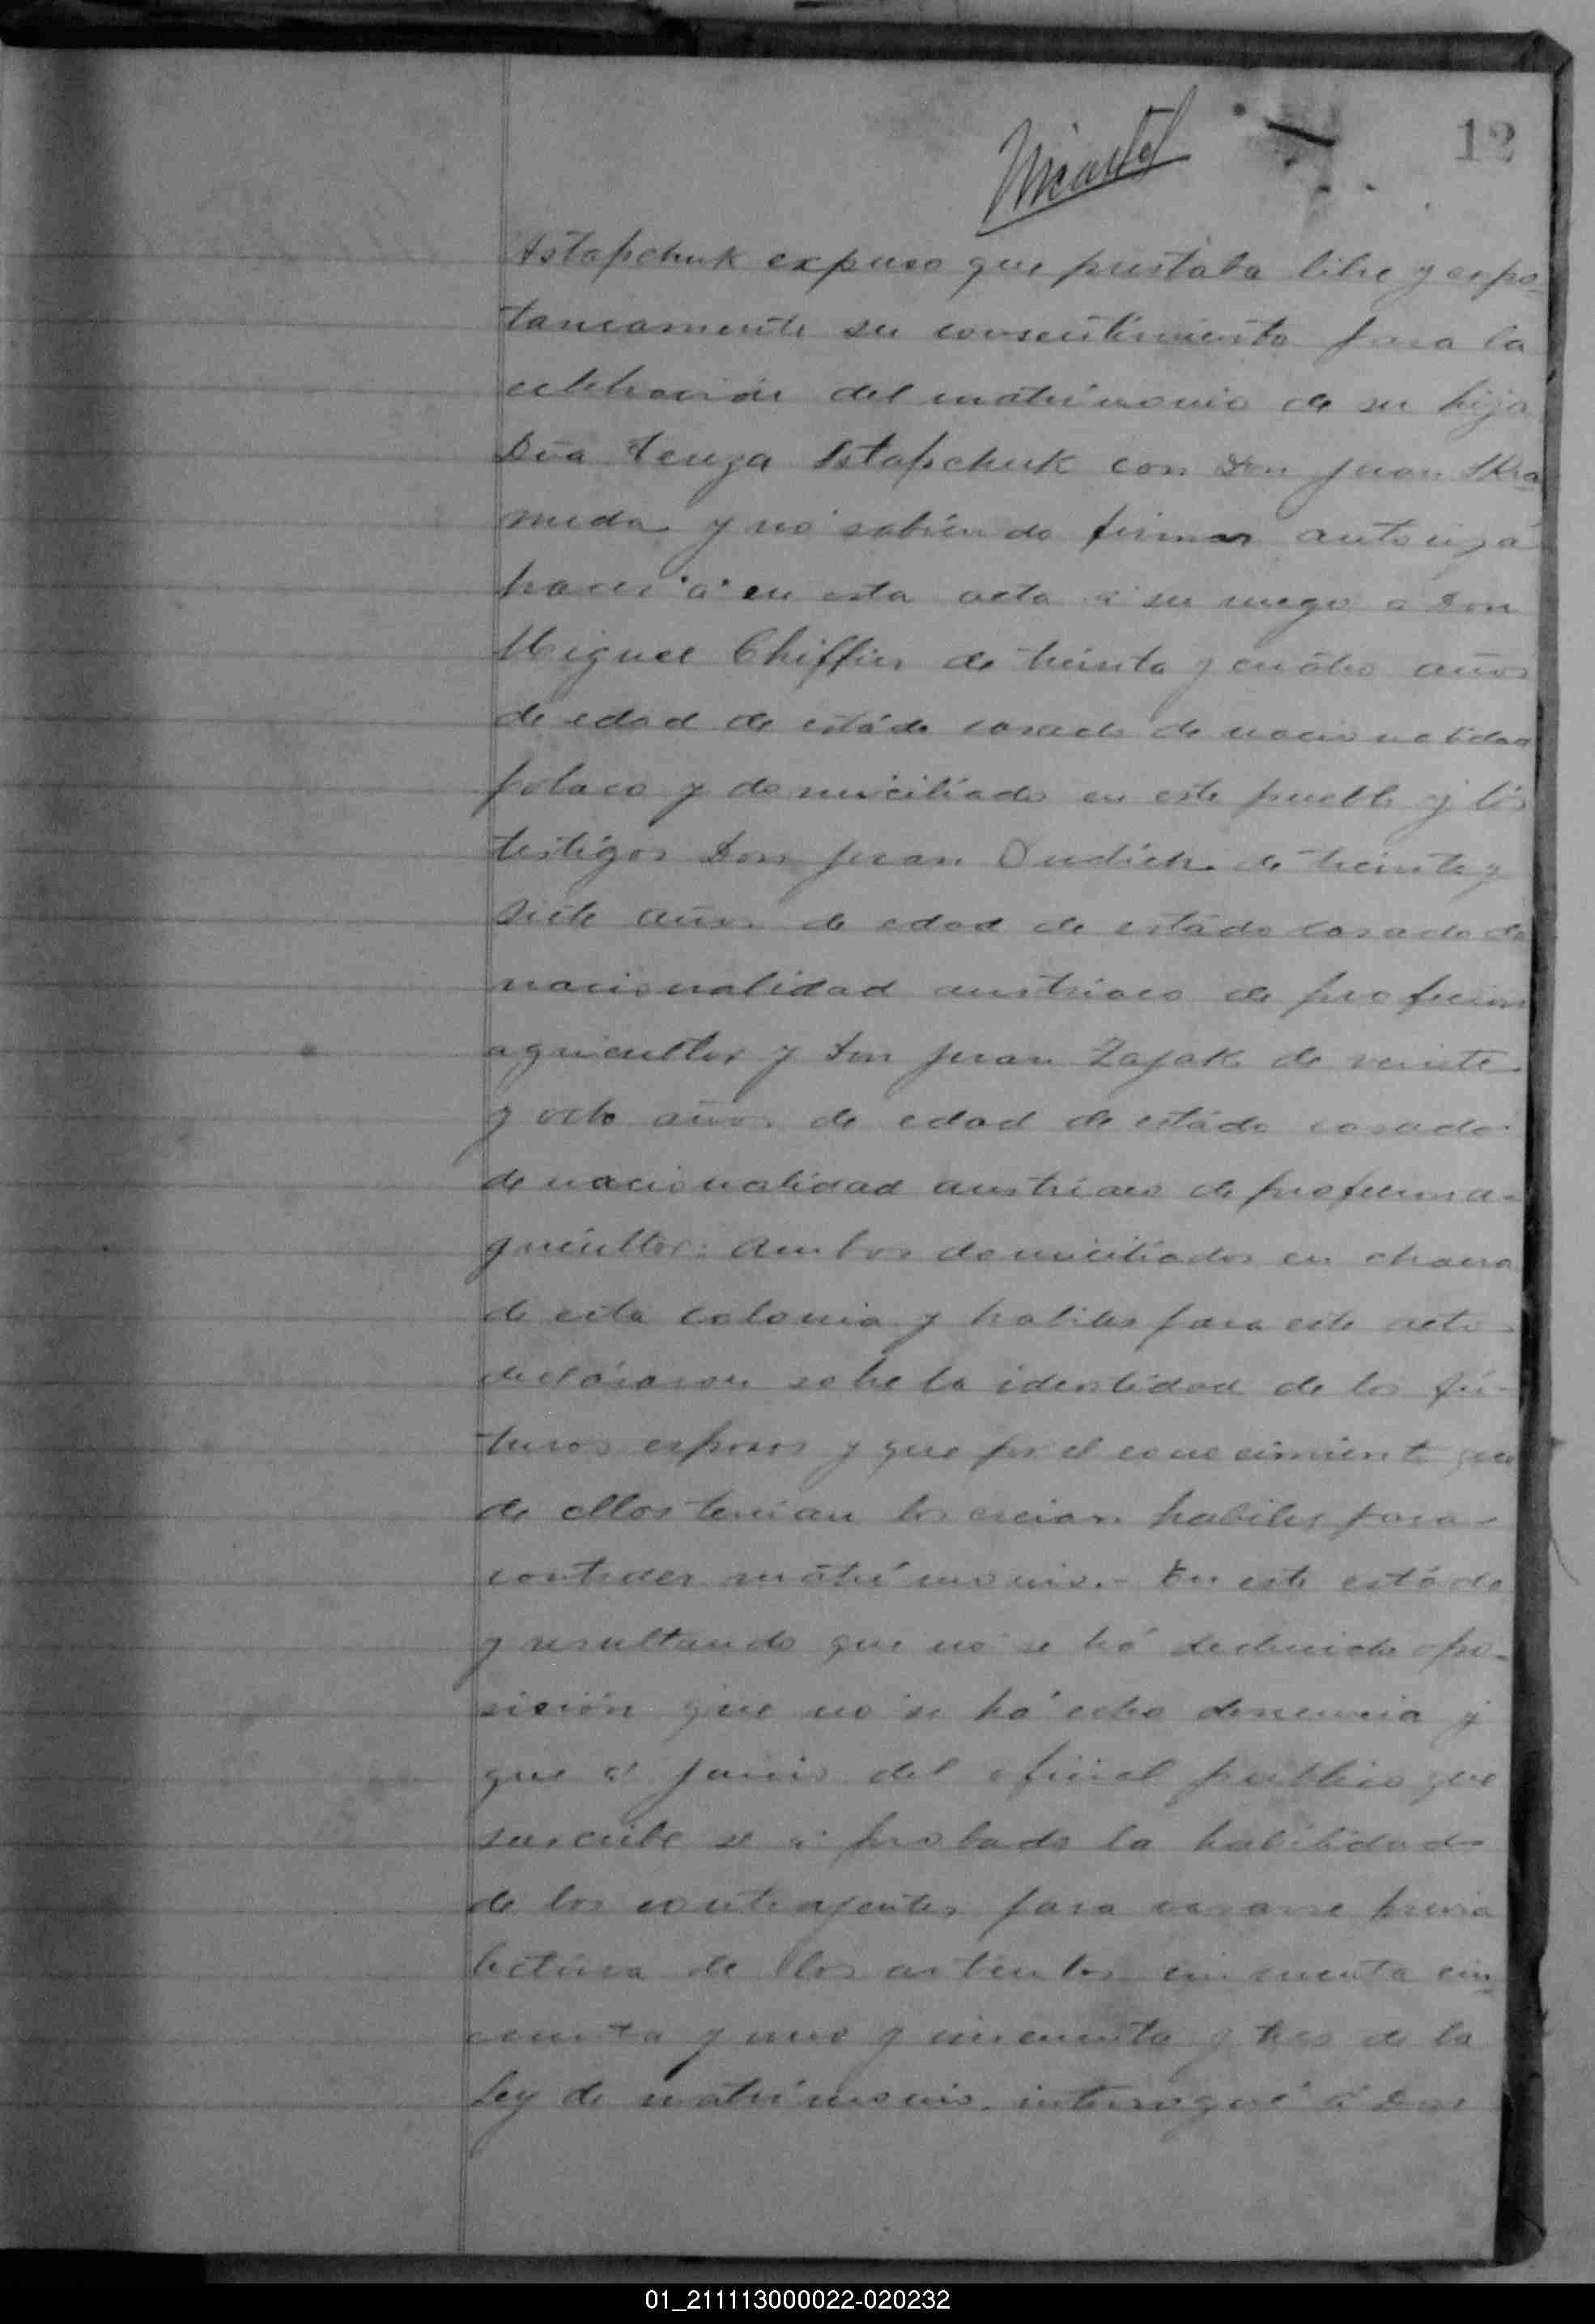 12
Astapchuk expuso que prestaba libre y expo-
taneamente su consentimiento para la
celebración del matrimonio de su hija
Dña Tenza Astapchuk con Don Juan Skra-
meda y no sabiendo firmar autorizá
hacer á en esta acta á su ruego a Don
Miguel Chiffier de treinta y cuatro años
de edad de estádo casado de nacionalidad
polaco y domiciliado en este pueblo y los
testigos Don Juan Dudich de treinta y
siete años de edad de estádo casado de
nacionalidad austriaco de profecion
agricultor y Don Juan Zajak de veinte
y ocho años de edad de estádo casado
de nacionalidad austriaco de profecion a-
gricultor: ambos domiciliados en chacra
de esta colonia y habiles para este acto
declararon sobre la identidad de los fu-
turos esposos y que por el conocimiento que
de ellos tenian los creian habiles para
contraer matrimonio.- En este estádo
y resultando que no se há deducido opo-
sición que no se há echo denuncia y
que á juicio del oficial publico que
suscribe se á probado la habilidad
de los contrayentes para casarse previa
lectura de los articulos cincuenta cin-
cuenta y uno y cincuenta y tres de la
Ley de matrimonio, interrogué á Don
01_211113000022-020232